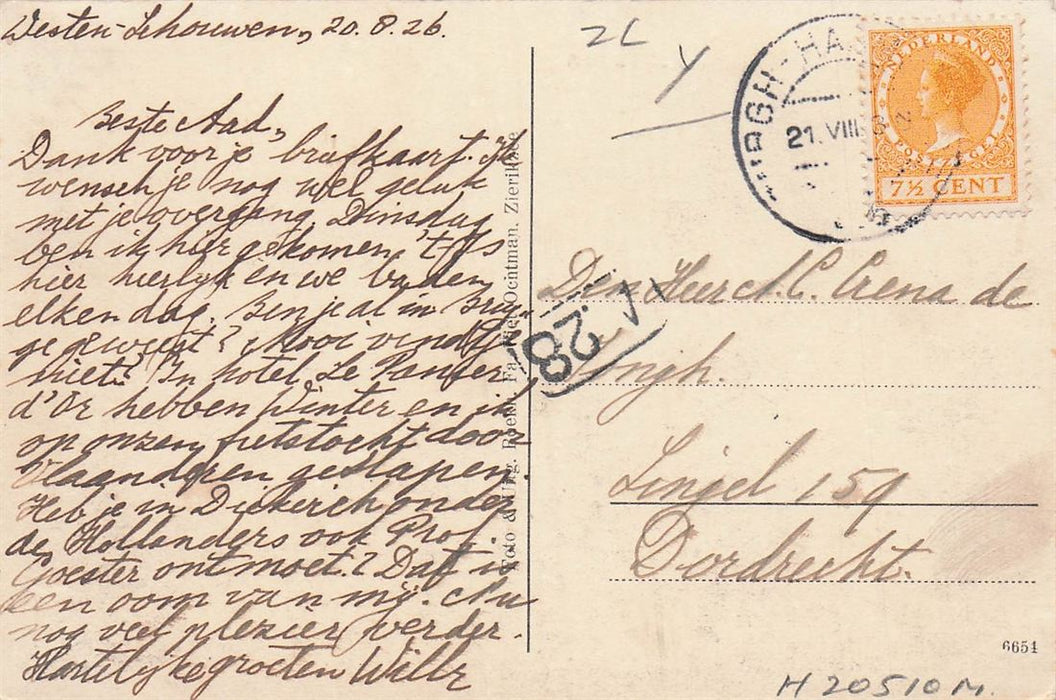 Westen-Schouwen, 20.8.26.
Beste Aad,
Dank voor je briefkaart. Ik
wensch je nog wel geluk
met je overgang. Dinsdag
ben ik hier gekomen. 't Is
hier heerlijk en we baden
elken dag. Ben je al in Brug-
ge geweest? Mooi vind je
niet? In hotel Le Panier
d'Or hebben Winter en ik
op onzen fietstocht door
Vlaanderen geslapen.
Heb je in Diekirch onder
de Hollanders ook Prof.
Goester ontmoet? Dat is
een oom van mij. Nu
nog veel plezier verder.
Hartelijke groeten Wille
Foto & Uitg. Boekh. Fa. Ochtman. Zierikzee
2L
Y
RGH-HA
21.VIII
NEDERLAND
POSTZEGEL
7½ CENT
28
Den Heer A.C. Crena de
Iongh.
Singel 159
Dordrecht.
6654
H 20510 M